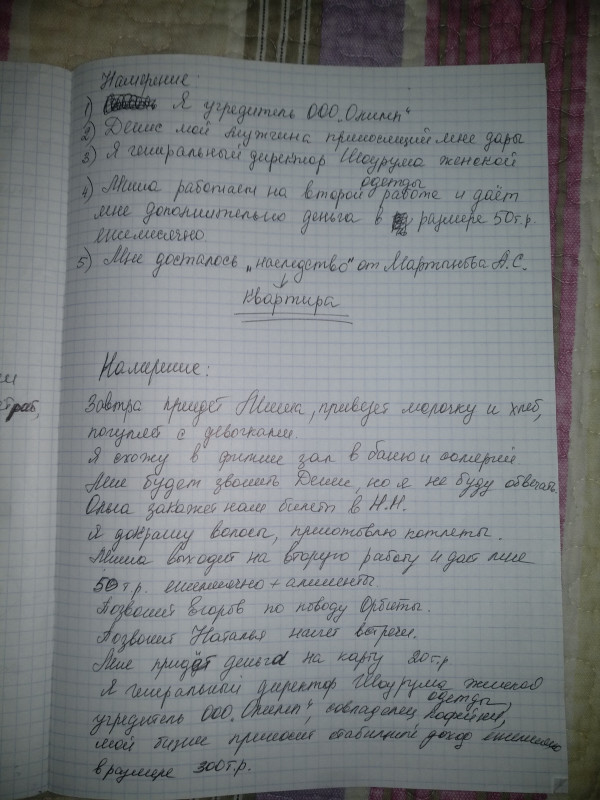 Намерение:
1) Я учредитель ООО „Олимп“
2) Денис мой мужчина приносящий мне дары
3) Я генеральный директор Шоурума женской
одежды
4) Миша работает на второй работе и даёт
мне дополнительно деньга в размере 50 т.р.
ежемесячно
5) Мне досталось „наследство“ от Мартынова А.С.
↓
квартира
Намерение:
Завтра придет Миша, привезет молочку и хлеб,
погуляет с девочками.
Я схожу в фитнес зал в баню и солярий
Мне будет звонить Денис, но я не буду отвечать.
Ольга закажет нам билеты в Н.Н.
Я докрашу волосы, приготовлю котлеты.
Миша выходет на вторую работу и дает мне
50 т.р. ежемесячно + алименты
Позвонит Егоров по поводу Орбиты.
Позвонит Наталья насчет встречи.
Мне придёт деньга на карту 20 т.р
Я генеральный директор Шоурума женской
одежды,
учредитель ООО „Олимп“, совладелец кофейни,
мой бизнес приносит стабильный доход ежемесячно
в размере 300 т.р.